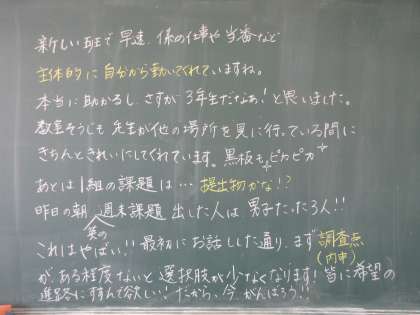 新しい班で早速、係の仕事や当番など
主体的に自分から動いてくれていますね。
本当に助かるし、さすが3年生だなあ!と思いました。
教室そうじも先生が他の場所を見に行っている間に
きちんときれいにしてくれています。黒板もピカピカ
あとは1組の課題は…提出物かな!?
昨日の朝、週末課題出した人は男子たった3人!!
英の
これはやばい!!最初にお話しした通り、まず調査点
(内申)
が、ある程度ないと選択肢が少なくなります!皆に希望の
進路にすすんで欲しい!だから、今、がんばろう!!